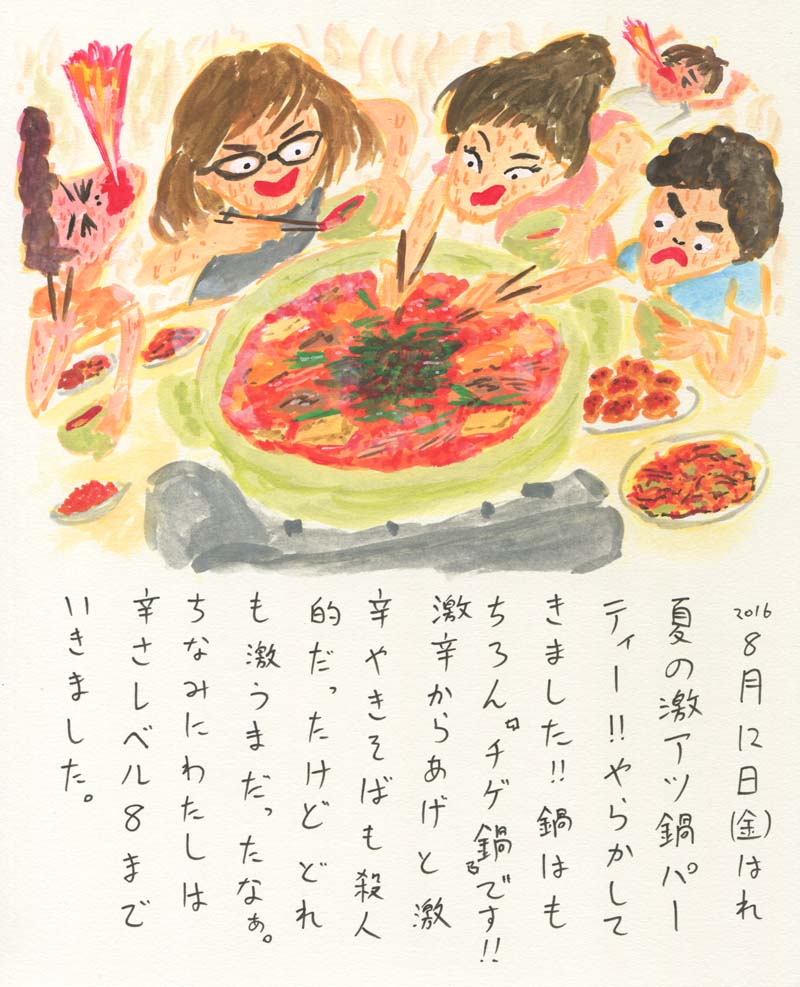 2016 8月12日(金)はれ
夏の激アツ鍋パー
ティー!!やらかして
きました!!鍋はも
ちろん『チゲ鍋』です!!
激辛からあげと激
辛やきそばも殺人
的だったけどどれ
も激うまだったなぁ。
ちなみにわたしは
辛さレベル8まで
いきました。